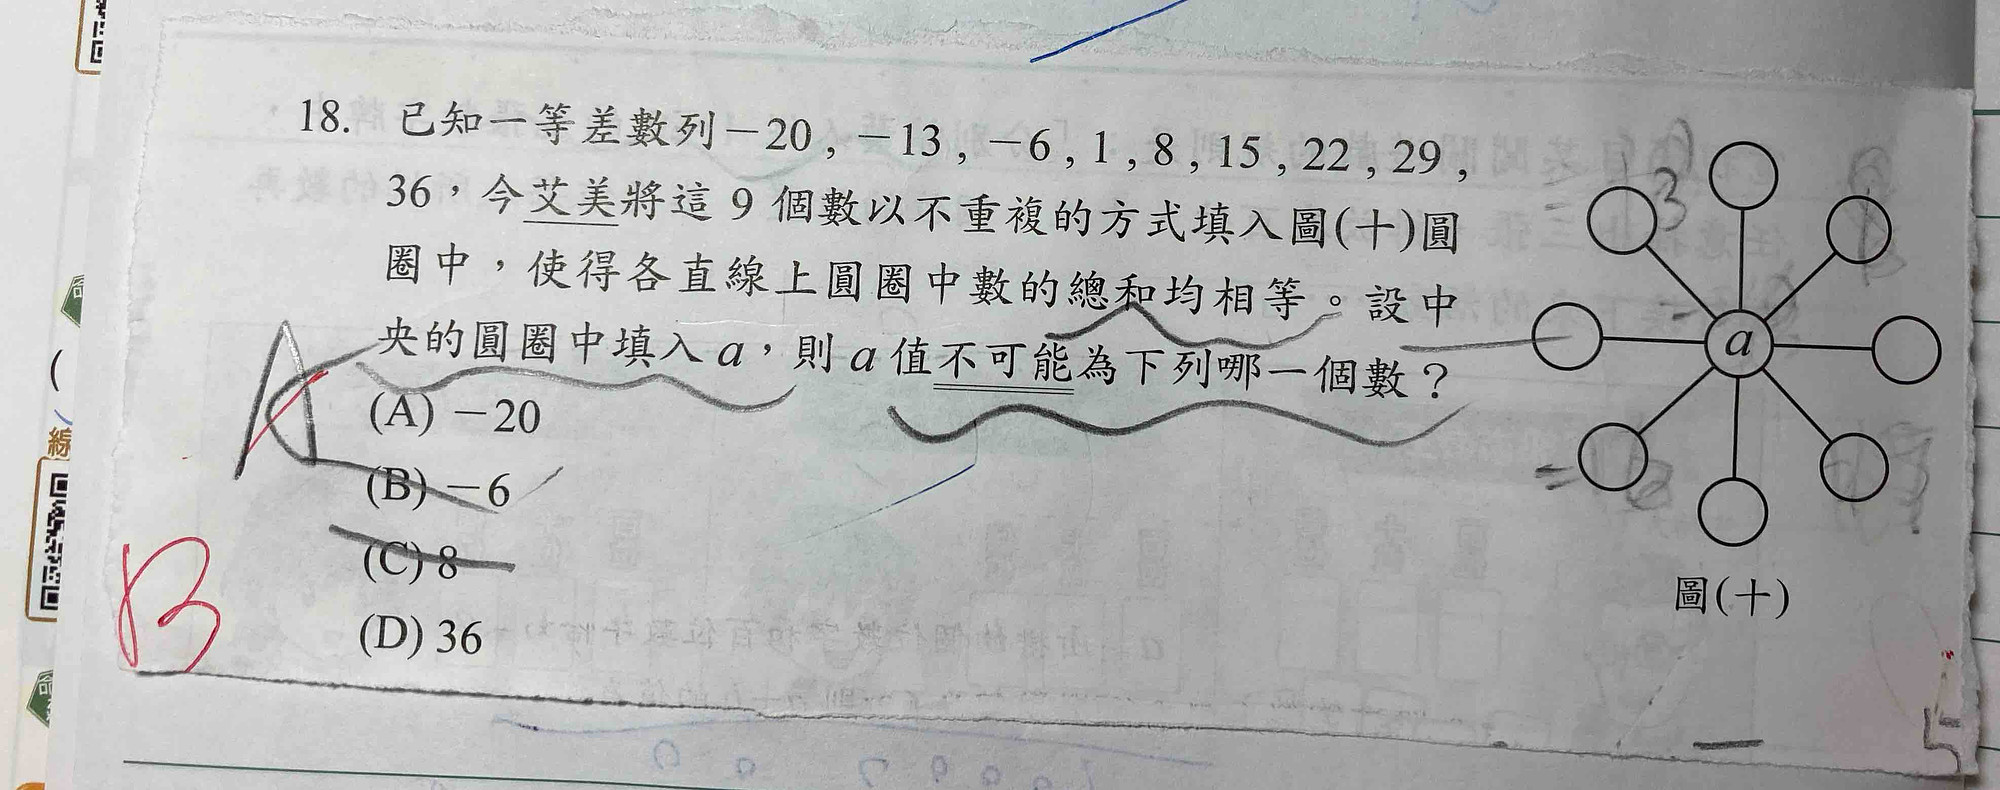 18. 已知一等差數列－20，－13，－6，1，8，15，22，29，
36，今艾美將這 9 個數以不重複的方式填入圖(十)圓
圈中，使得各直線上圓圈中數的總和均相等。設中
央的圓圈中填入 a，則 a 值不可能為下列哪一個數？
A
(A) －20
(B) －6
(C) 8
(D) 36
B
a
圖(十)